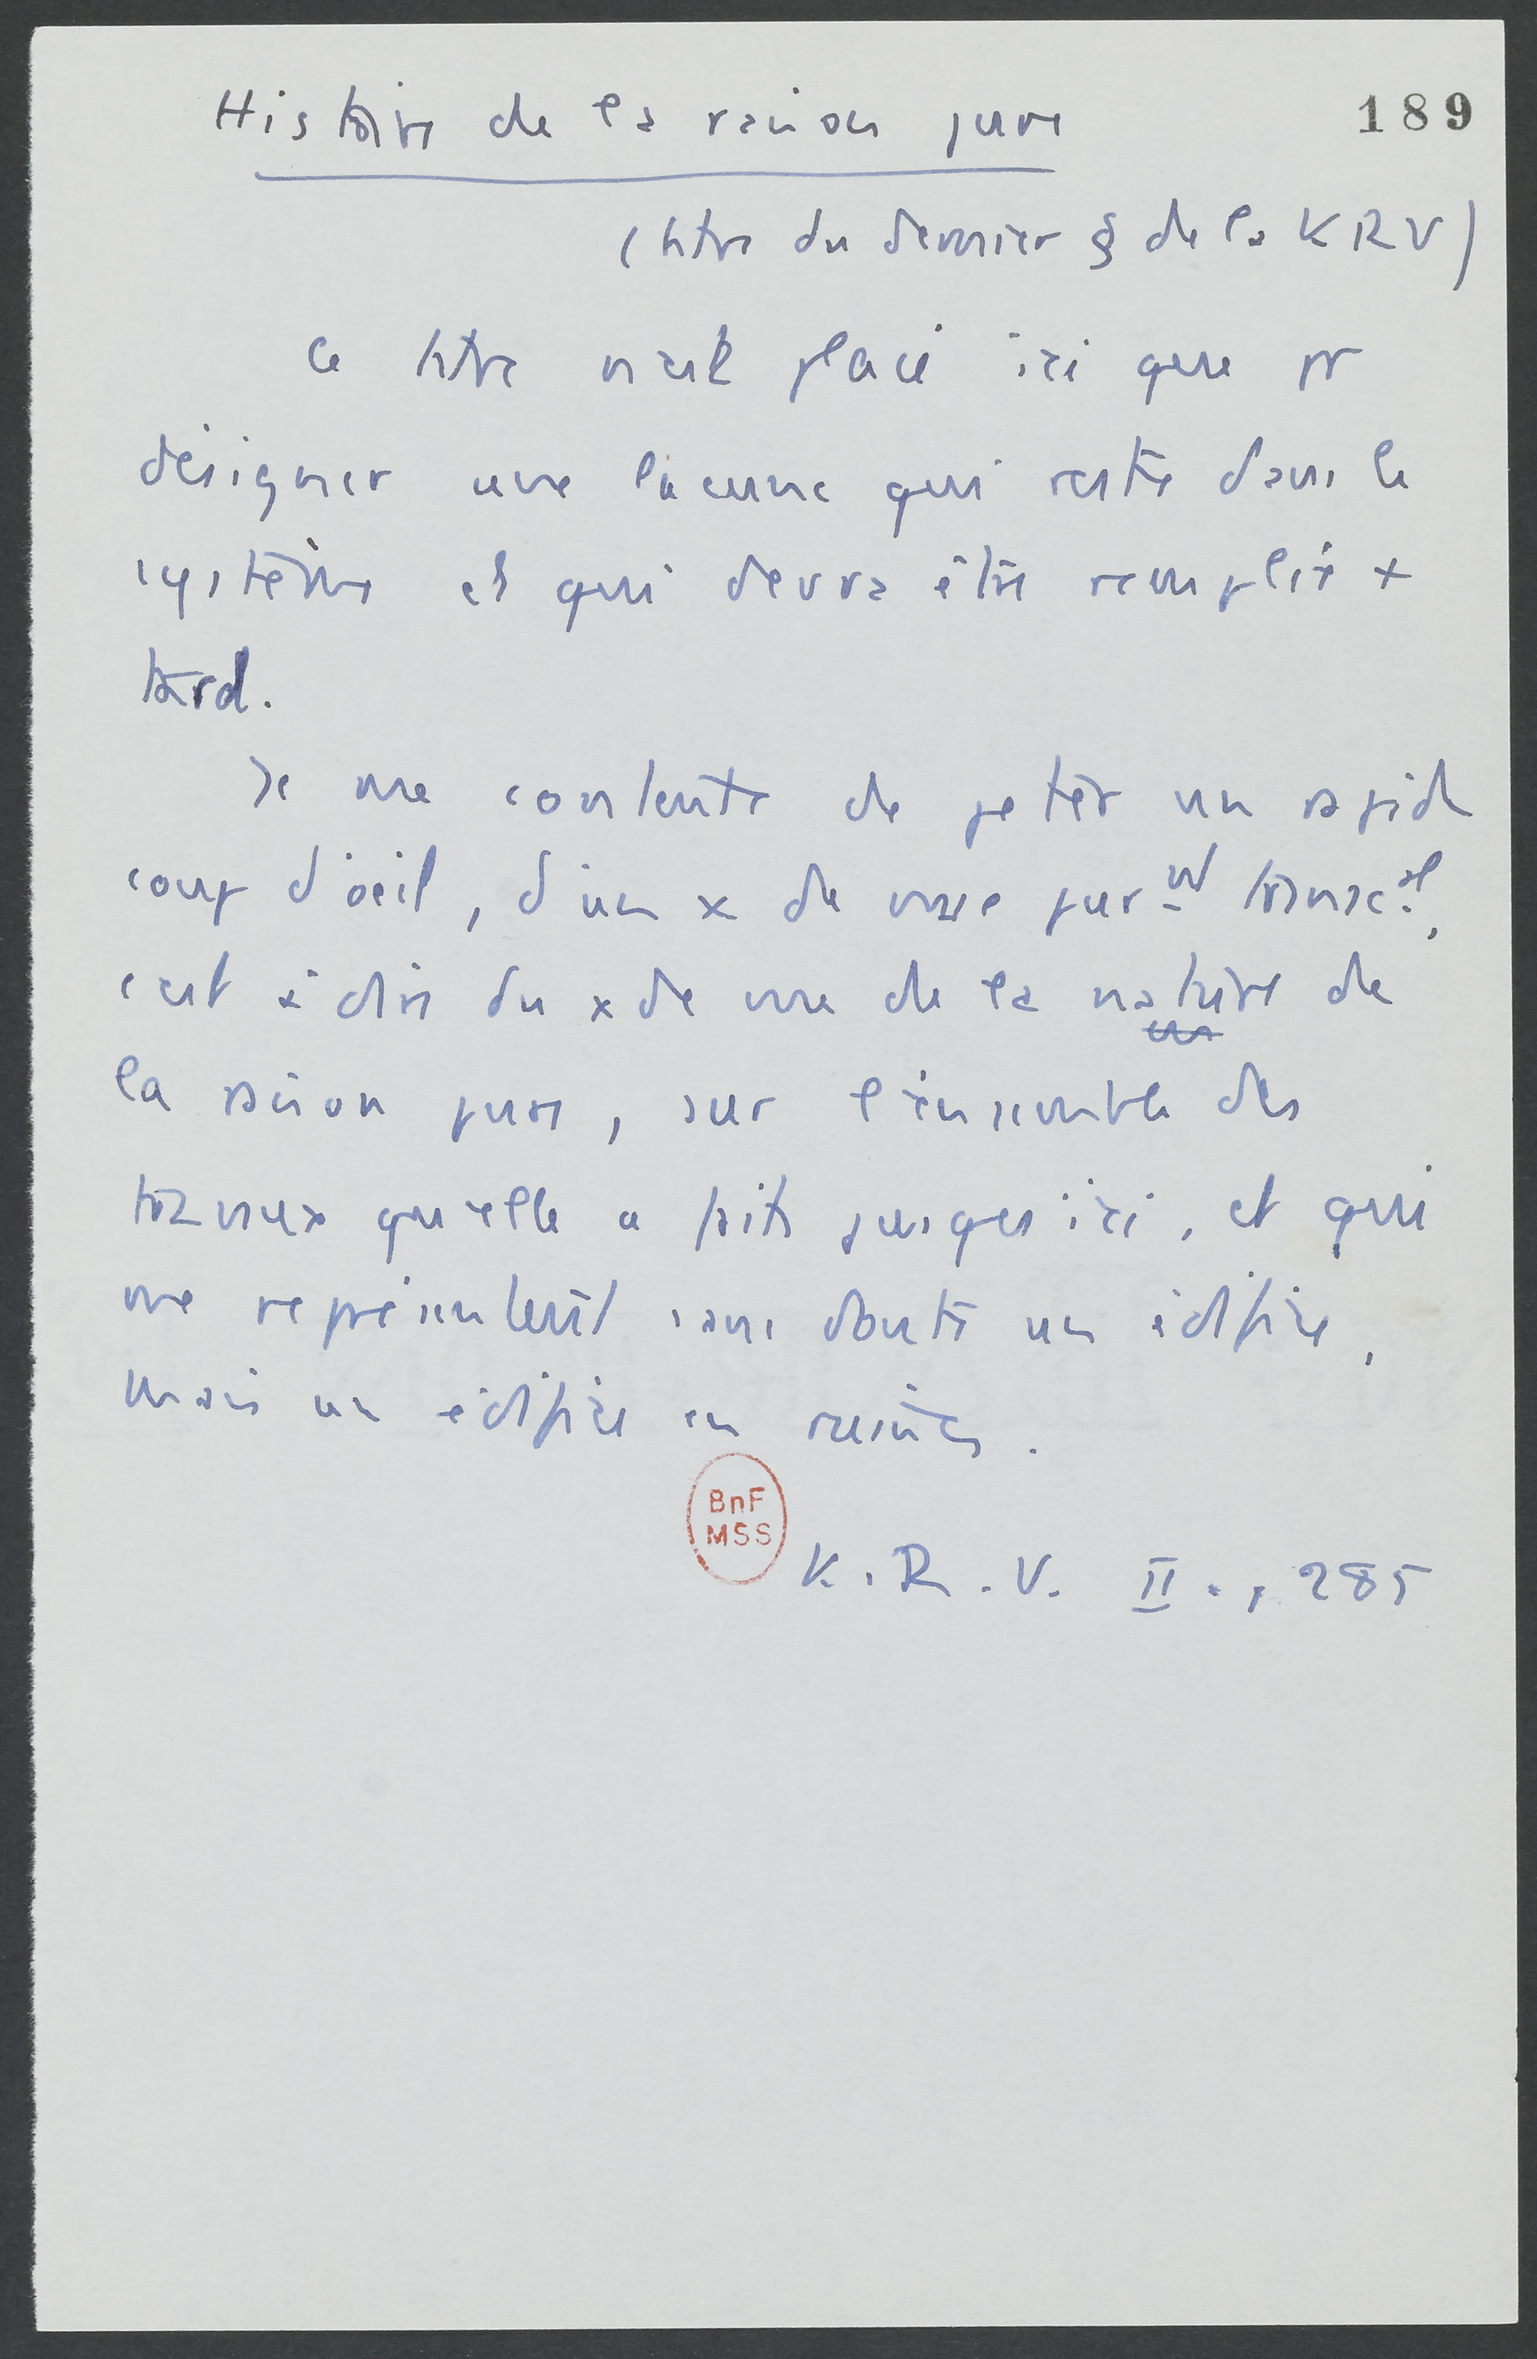 189
Histoire de la raison pure
(titre du dernier § de la KRV)
Ce titre n'est placé ici que pr
désigner une lacune qui reste dans le
système et qui devra être remplie +
tard.
Je me contente de jeter un rapide
coup d'oeil, d'un x de vue purnt transcal,
c'est à dire du x de vue de la nature de
la raison pure, sur l'ensemble des
travaux qu'elle a faits jusqu'ici, et qui
me représentent sans doute un édifice,
mais un édifice en ruines.
BnF
MSS
K.R.V. II., 285